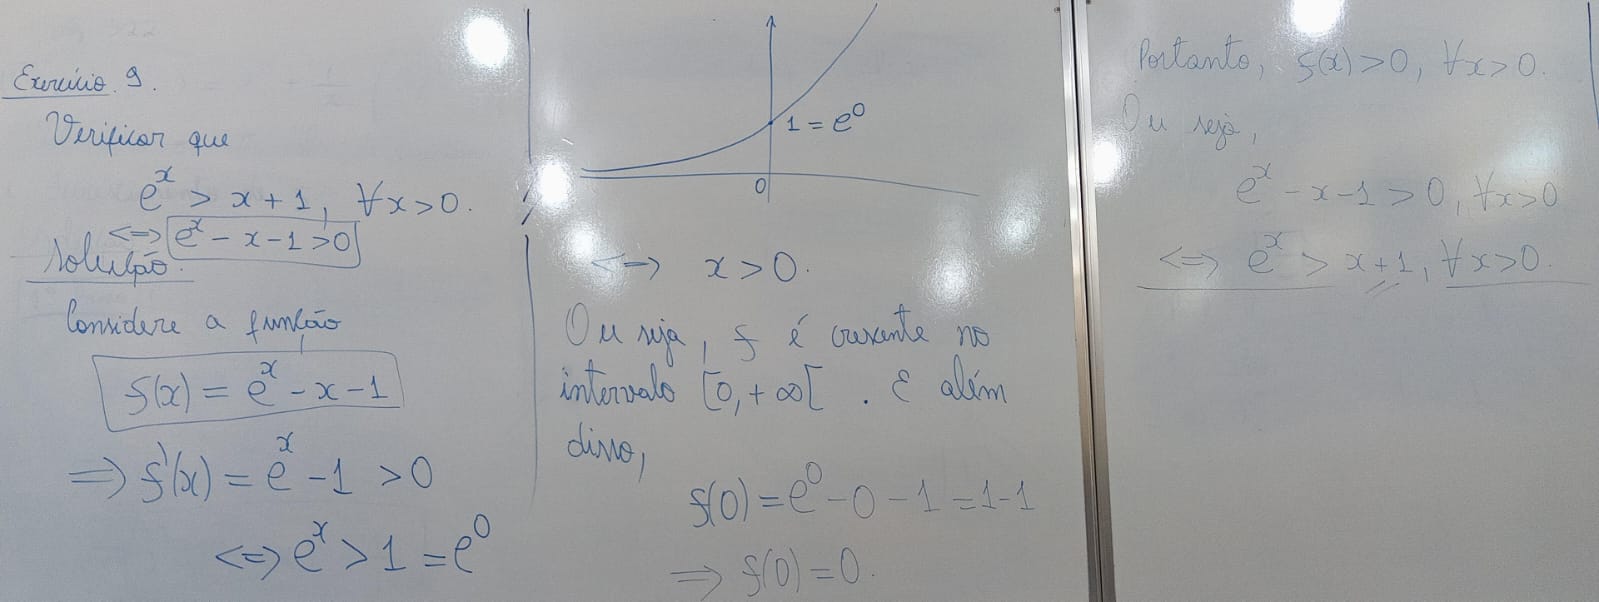 Exercício 9.
Verificar que
e^x > x + 1, ∀x > 0.
<=> e^x - x - 1 > 0
Solução.
Considere a função
f(x) = e^x - x - 1
=> f'(x) = e^x - 1 > 0
<=> e^x > 1 = e^0
1 = e^0
0
<=> x > 0.
Ou seja, f é crescente no
intervalo [0, + ∞[ . E além
disso,
f(0) = e^0 - 0 - 1 = 1 - 1
=> f(0) = 0.
Portanto, f(x) > 0, ∀x > 0.
Ou seja,
e^x - x - 1 > 0, ∀x > 0
<=> e^x > x + 1, ∀x > 0.